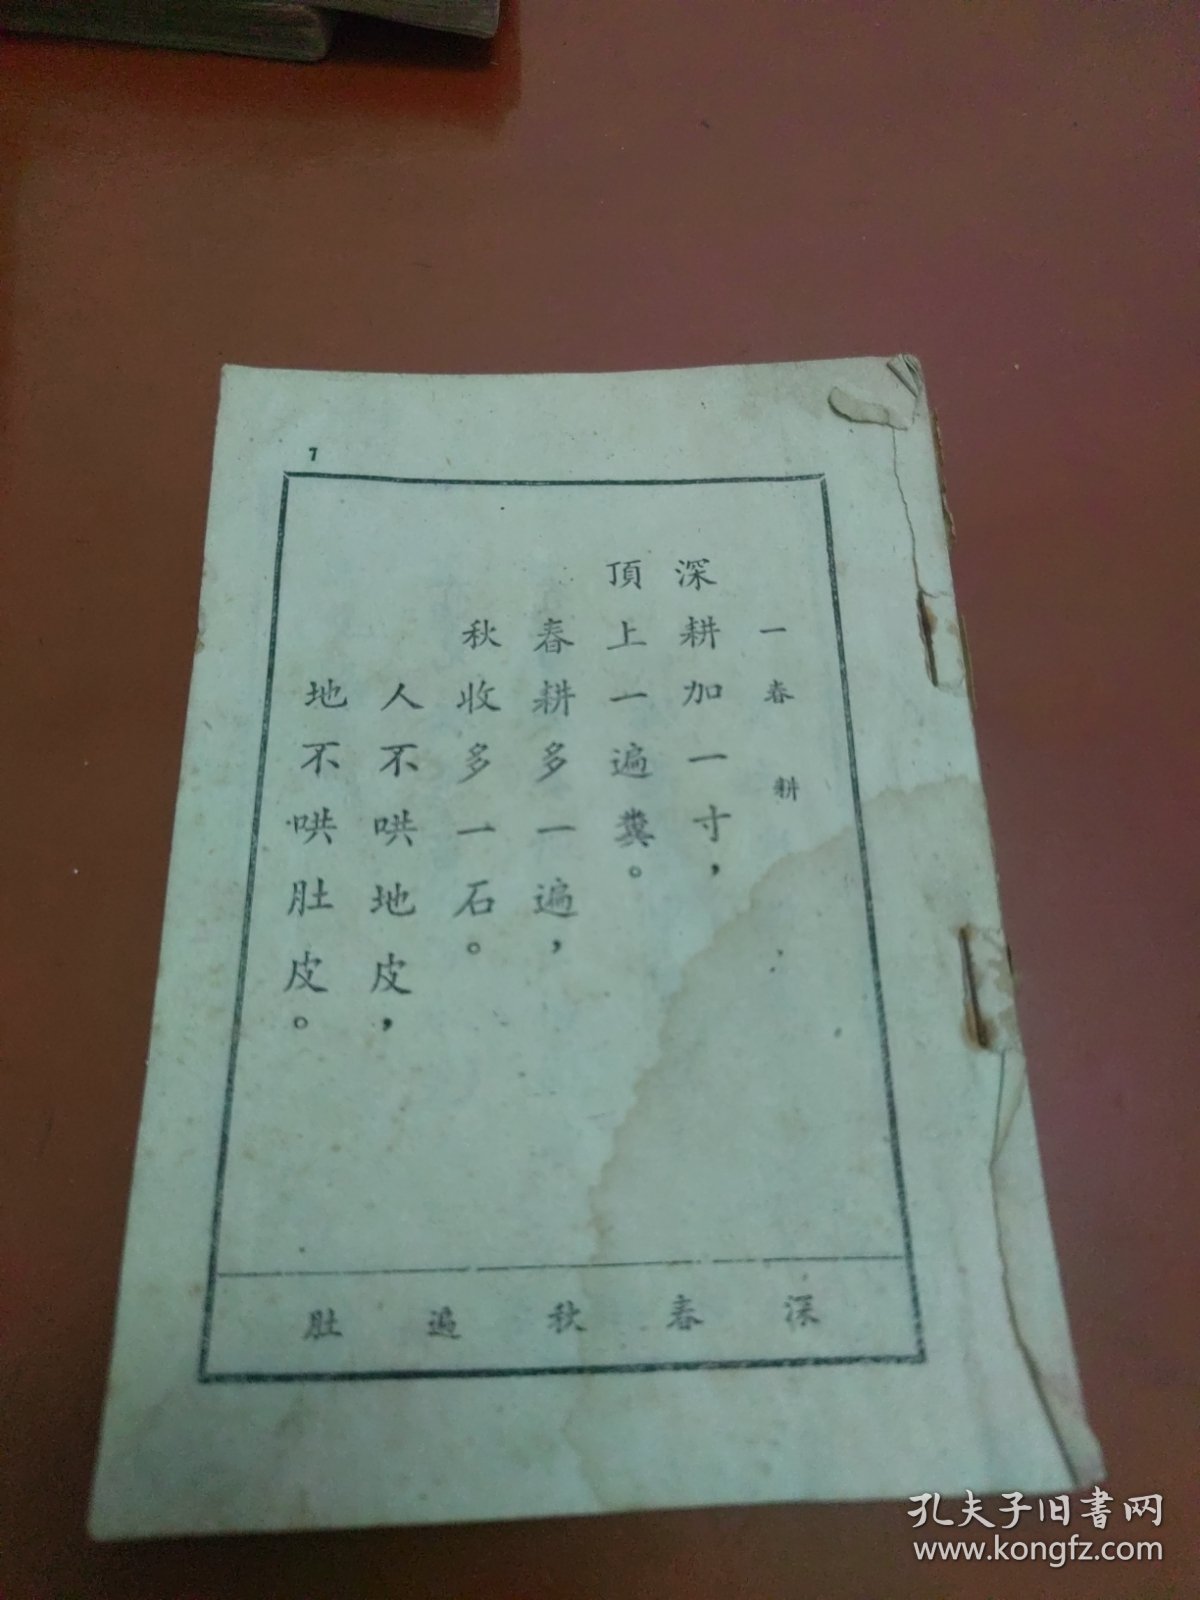 7
一 春 耕
深耕加一寸，
頂上一遍糞。
春耕多一遍，
秋收多一石。
人不哄地皮，
地不哄肚皮。
深 春 秋 遍 肚
孔夫子旧書网
www.kongfz.com